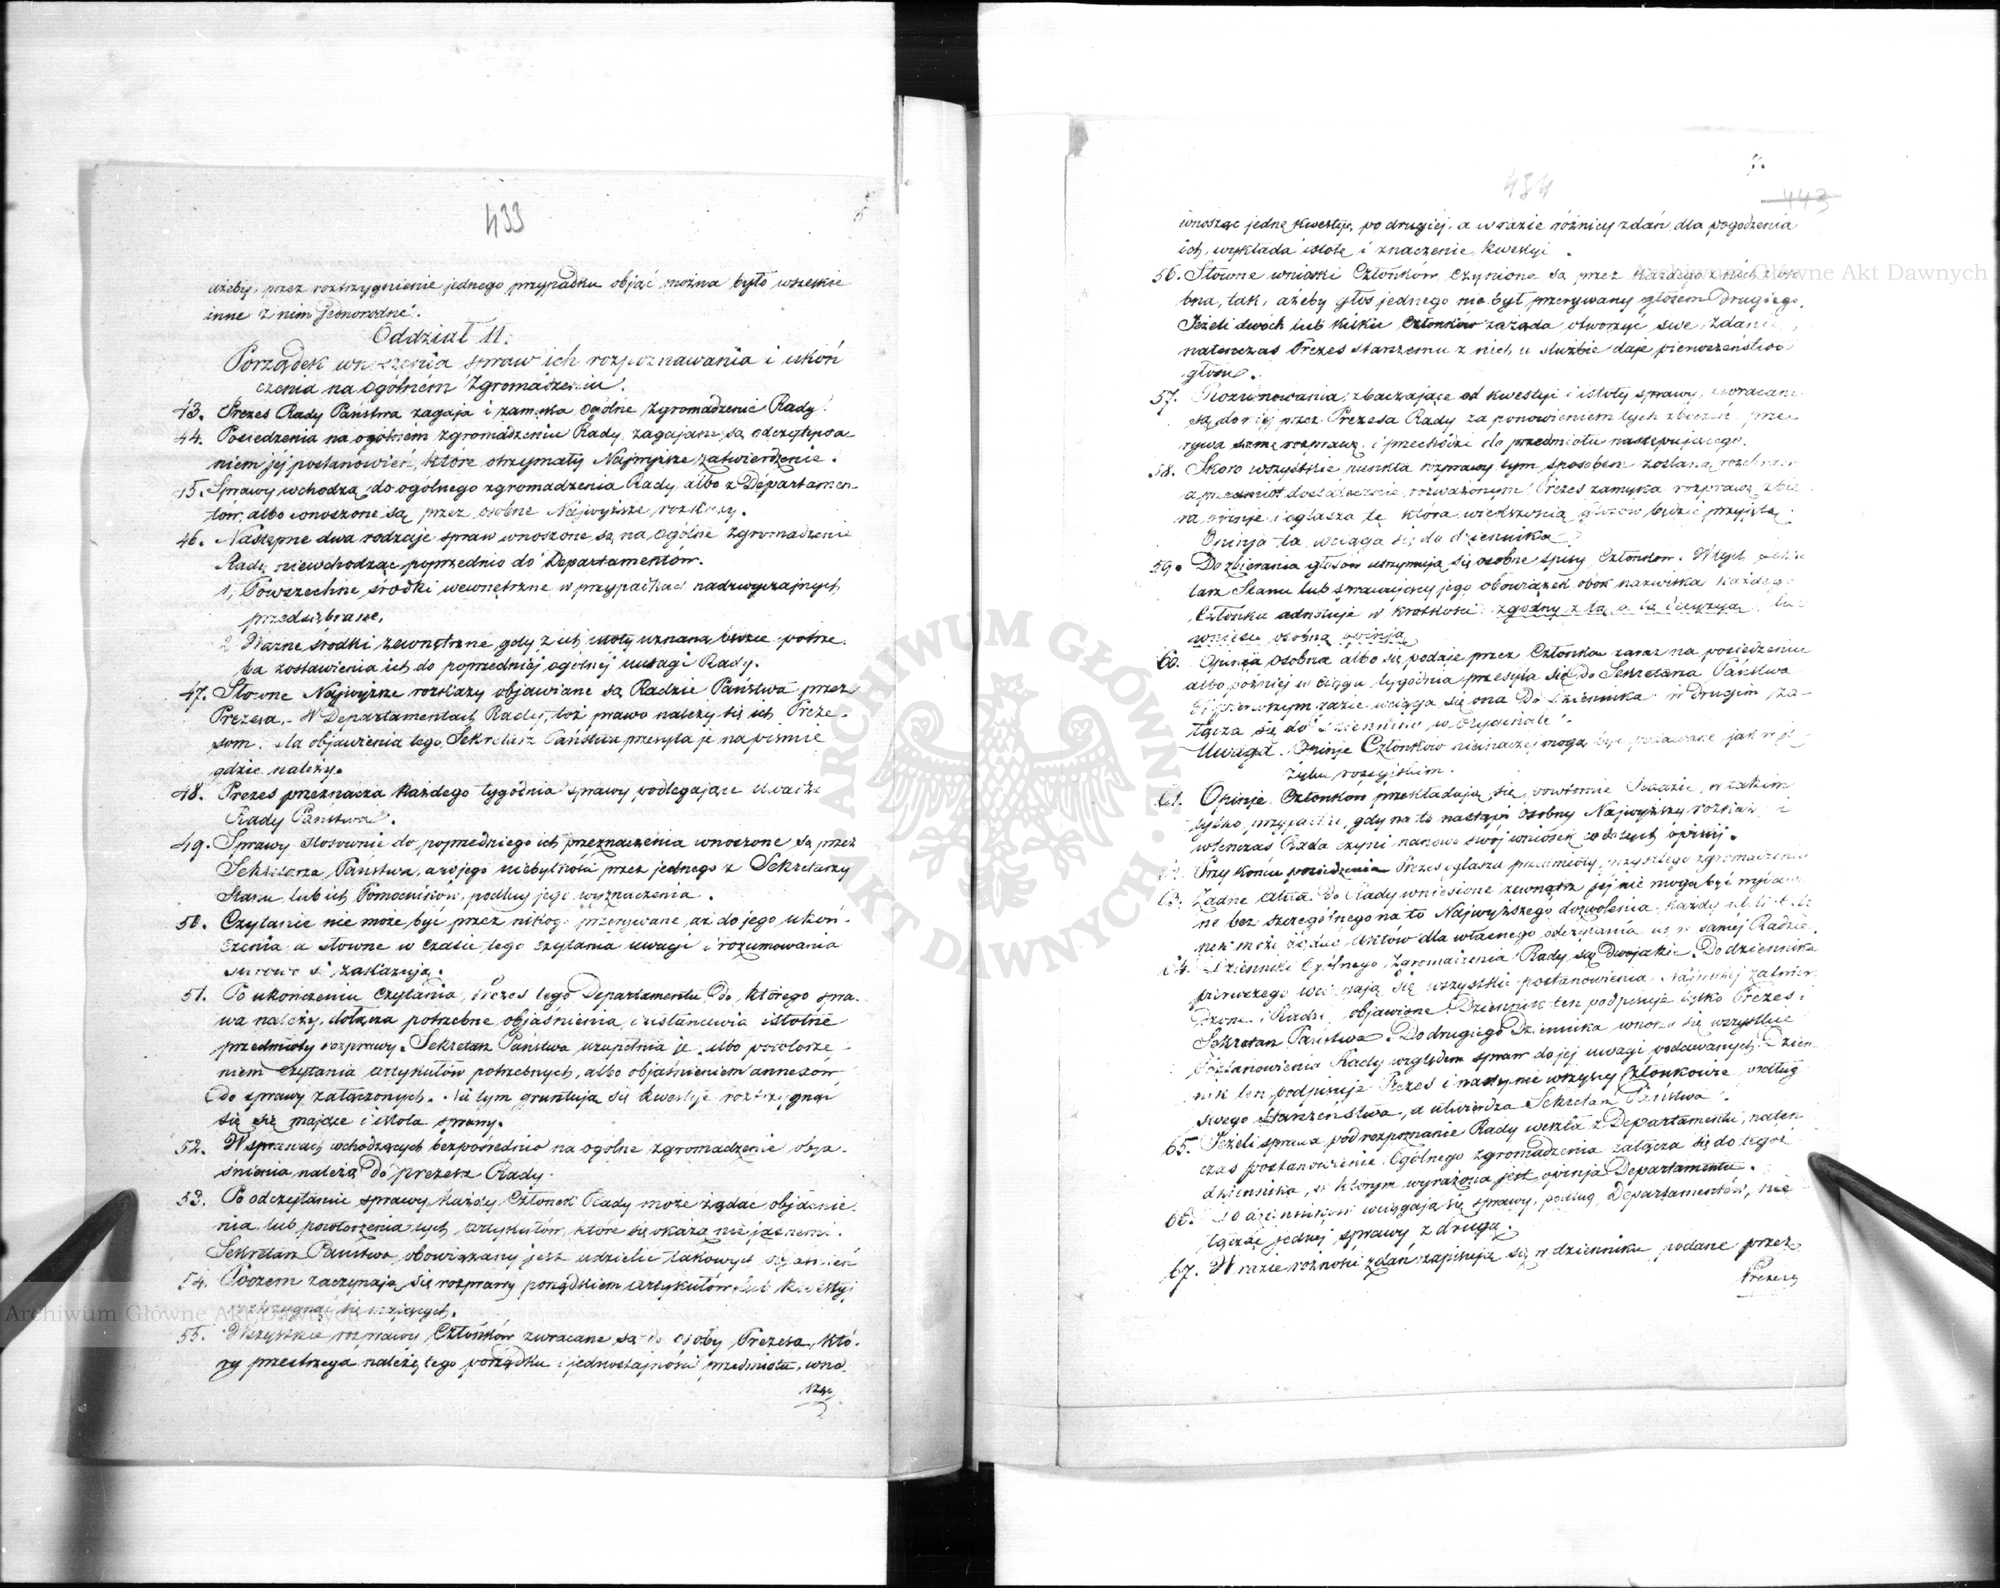 433
ażeby, przez roztrzygnienie jednego przypadku objąć można było wszelkie
inne z nim jednorodne.
Oddział II.
Porządek wnoszenia spraw ich rozpoznawania i ukoń
czenia na ogólném Zgromadzeniu.
43. Prezes Rady Państwa zagaja i zamyka ogólne zgromadzenie Rady.
44. Posiedzenia na ogólném zgromadzeniu Rady, zagajane są odczytywa
niem jéj postanowień, które otrzymały Najwyższe zatwierdzenie.
45. Sprawy wchodzą do ogólnego zgromadzenia Rady albo z Departamen
tów, albo wnoszone są przez osobne Najwyższe rozkazy.
46. Następne dwa rodzaje spraw wnoszone są na ogólne zgromadzenie
Rady niewchodząc poprzednio do Departamentów.
1, Powszechne środki wewnętrzne w przypadkach nadzwyczajnych
przedsiębrane,
2 Ważne środki zewnętrzne, gdy z ich istoty uznaną będzie potrze
ba zostawienia ich do poprzedniéj ogólnéj uwagi Rady.
47. Słowne Najwyższe rozkazy objawiane są Radzie Państwa przez
Prezesa. W Departamentach Rady, toż prawo należy się ich Preze-
som. dla objawienia tego Sekretarz Państwa przesyła je na piśmie
gdzie należy.
48. Prezes przeznacza każdego tygodnia sprawy podlegające uwadze
Rady Państwa.
49. Sprawy stosownie do poprzedniego ich przeznaczenia wnoszone są przez
Sekretarza Państwa, a w jego niebytności przez jednego z Sekretarzy
Stanu lub ich Pomocników, podług jego wyznaczenia.
50. Czytanie nie może być przez nikogo przerywane, aż do jego ukoń-
czenia a słowne w czasie tego czytania uwagi i rozumowania
surowo się zakazują.
51. Po ukończeniu czytania, Prezes tego Departamentu do którego spra-
wa należy, dołącza potrzebne objaśnienia, i ustanawia istotne
przedmioty rozprawy. Sekretarz Państwa uzupełnia je, albo powtórze-
niem czytania artykułów potrzebnych, albo objaśnieniem annexów
do sprawy załączonych. Na tym gruntują się kwestje roztrzygnąć
się mające i istota sprawy.
52. W sprawach wchodzących bezpośrednio na ogólne zgromadzenie obja-
śnienia należą do prezesa Rady.
53. Po odczytaniu sprawy, każdy Członek Rady może żądać objaśnie
nia, lub powtórzenia tych artykułów, które się okażą niejasnemi.
Sekretarz Państwa obowiązany jest udzielić takowych objaśnień
54. Poczem zaczynają się rozprawy porządkiem artykułów lub kwestyj
roztrzygnąć się mających.
55. Wszystkie rozprawy Członków zwracane są do osoby Prezesa, któ-
ry przestrzega należytego porządku i jednostajności przedmiotu, wno-
sząc
7.
434
443
wnosząc jedną kwestję, po drugiéj, a w razie różnicy zdań, dla pogodzenia
ich, wykłada istotę i znaczenie kwestyi.
56. Słowne wnioski Członków czynione są przez każdego z nich z oso
bna, tak, ażeby głos jednego nie był przerywany głosem drugiego.
Jeżeli dwóch lub kilku Członków zażąda otworzyć swe zdanie,
natenczas Prezes starszemu z nich w służbie daje pierwszeństwo
głosu.
57. Rozumowania zbaczające od kwestyi i istoty sprawy, zwracane
są do niéj przez Prezesa Rady za ponowieniem tych zboczeń, prze
rywa samą rozprawę i przechodzi do przedmiotu następującego.
58. Skoro wszystkie punkta rozprawy tym sposobem zostaną rozebrane
a przedmiot dostatecznie rozważonym, Prezes zamyka rozprawę, zbie
ra opinje i ogłasza tę która większością głosów będzie przyjętą.
Opinja ta wciąga się do dziennika.
59. Do zbierania głosów utrzymują się osobne spisy Członków. W tych Sekre
tarz Stanu lub sprawujący jego obowiązek obok nazwiska każdego
Członka adnotuje w krótkości: zgodny z tą a tą decyzją, lub
wniesie osobną opinją
60. Opinja osobna albo się podaje przez Członka zaraz na posiedzeniu
albo później w ciągu tygodnia przesyła się do Sekretarza Państwa
W pierwszym razie wciąga się ona do dziennika w drugim za-
łącza się do dziennika w oryginale.
Uwaga. Opinje Członków nieinaczéj mogą być podawane jak w ję
zyku rossyjskim.
61. Opinje Członków przekładają się powtórnie Radzie, w takim
tylko przypadku, gdy na to nastąpi osobny Najwyższy rozkaz i
wtenczas Rada czyni nanowo swój wniosek co do tych opinij.
62. Przy końcu posiedzenia Prezes ogłasza przedmioty przyszłego zgromadzenia
63. Żadne akta do Rady wniesione zewnątrz jéj nie mogą być wydawa
ne bez szczególnego na to Najwyższego dozwolenia. Każdy
nek może żądać aktów dla własnego odczytania ich w saméj Radzie.
64. Dzienniki Ogólnego Zgromadzenia Rady są dwojakie. Do dziennika
pierwszego wciągają się wszystkie postanowienia Najwyżéj zatwier
dzone i Radzie objawione. Dziennik ten podpisuje tylko Prezes i
Sekretarz Państwa. Do drugiego Dziennika wnoszą się wszystkie
Postanowienia Rady względem spraw do jéj uwagi podawanych. Dzien
nik ten podpisuje Prezes i wszyscy Członkowie według
swego starszeństwa, a utwierdza Sekretarz Państwa.
65. Jeżeli sprawa pod rozpoznanie Rady weszła z Departamentu, naten
czas postanowienie Ogólnego zgromadzenia załącza się do tegoż
dziennika, w którym wyrażona jest opinja Departamentu.
66. Do dzienników wciągają się sprawy, podług Departamentów, nie
łącząc jednéj sprawy z drugą.
67. W razie różności zdań, zapisują się w dzienniku podane przez
Prezesa
Archiwum Główne Akt Dawnych
Archiwum Główne Akt Dawnych
ARCHIWUM GŁÓWNE AKT DAWNYCH